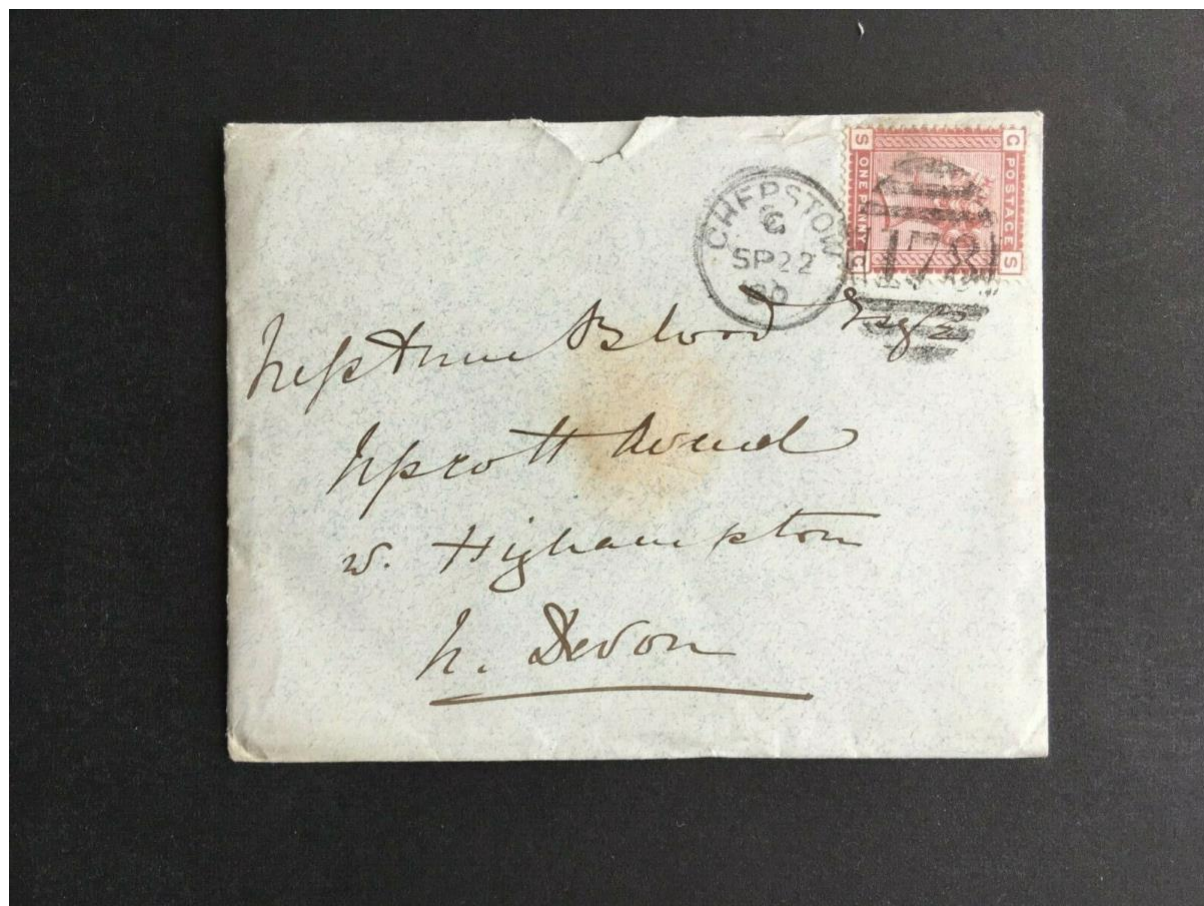 CHEPSTOW
C
SP 22
80
S C
POSTAGE
ONE PENNY
C S
178
Neptune Blood Esqre
Uprott
w. Highampton
N. Devon